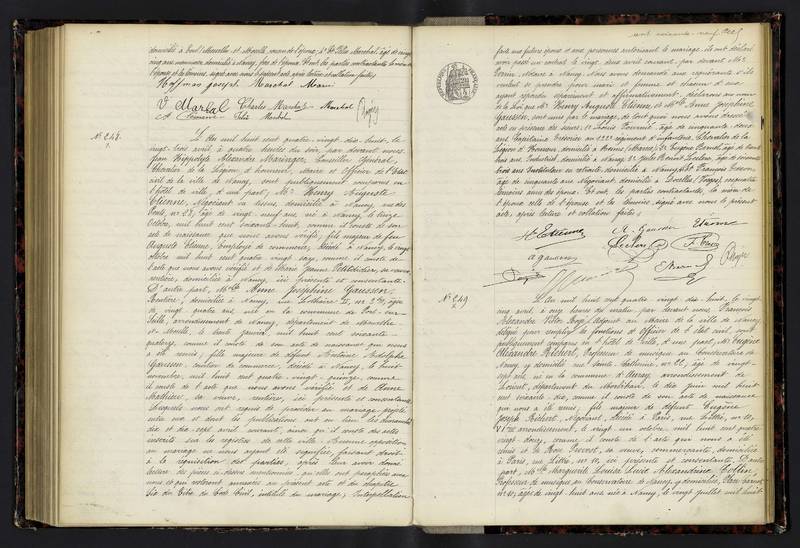 cent soixante-neuf
domicilié à Toul, Meurthe et Moselle, cousin de l'épouse, & de Félix Marchal, âgé de vingt
cinq ans, domicilié à Nancy, frère de l'époux. Et ont, les parties contractantes, la mère de
l'époux et les témoins, signé avec nous le présent acte, après lecture et collation faites;
Hoffman Joseph Marchal Marie
V. Marbal Charles Marchal Marchal
Félix Marchal
N° 248.
L'An mil huit cent quatre vingt dix huit, le
vingt trois avril, à quatre heures du soir, par devant nous
Jean Hippolyte Alexandre Maringer, Conseiller Général,
Chevalier de la Légion d'honneur, Maire et Officier de l'Etat
civil de la ville de Nancy, sont publiquement comparus en
l'hôtel de ville, d'une part, Mr Henry Auguste
Etienne, Négociant en tissus, domicilié à Nancy, rue des
Ponts, n° 28, âgé de vingt neuf ans, né à Nancy, le treize
Octobre, mil huit cent soixante huit, comme il conste de son
acte de naissance que nous avons vérifié, fils majeur de feu
Auguste Etienne, employé de commerce, décédé à Nancy, le vingt
octobre mil huit cent quatre vingt seize, comme il conste de
l'acte que nous avons vérifié et de Marie Jeanne Petitdidier, sa veuve,
rentière, domiciliée à Nancy, ici présente et consentante.
D'autre part, Melle Anne Joséphine Gausson,
Rentière, domiciliée à Nancy, rue Lothaire II, n° 2, âgée
de vingt quatre ans, née en la commune de Port-sur-
Seille, arrondissement de Nancy, département de Meurthe
et Moselle, le trente janvier, mil huit cent soixante
quatorze, comme il conste de son acte de naissance qui nous
a été remis; fille majeure de défunt Antoine Adolphe
Gausson, courtier de commerce, décédé à Nancy, le huit
novembre, mil huit cent quatre vingt quinze, comme
il conste de l'acte que nous avons vérifié et de Anne
Mathieu, sa veuve, rentière, ici présente et consentante.
Lesquels nous ont requis de procéder au mariage projeté
entre eux et dont les publications ont eu lieu les dimanches
dix et dix sept avril courant, ainsi qu'il conste des actes
inscrits sur les registres de cette ville. Aucune opposition
au mariage ne nous ayant été signifiée, faisant droit
à la réquisition des parties, après leur avoir donné
lecture des pièces ci-dessus mentionnées, qu'elles ont paraphées avec
nous et qui resteront annexées au présent acte et du chapitre
Six du Titre du Code Civil, intitulé du mariage; Interpellation
faite aux futurs époux et aux personnes autorisant le mariage, ils ont déclaré
avoir passé un contrat le vingt deux avril courant, par devant Me
Notaire à Nancy. Nous avons demandé aux requérants s'ils
veulent se prendre pour mari et femme et chacun d'eux
ayant répondu séparément et affirmativement, déclarons au nom
de la loi que Mr Henry Auguste Etienne, et Melle Anne Joséphine
Gausson, sont unis par le mariage, de tout quoi nous avons dressé
acte en présence des sieurs: 1° Louis Fournil, âgé de cinquante deux
ans, Capitaine Trésorier au 132e régiment d'infanterie, Chevalier de la
Légion d'Honneur, domicilié à Reims (Marne), 2° Eugène
trois ans, Industriel, domicilié à Nancy, 3° Jules Benoit Leclerc, âgé de soixante
trois ans, Instituteur en retraite, domicilié à Nancy, & 4° François
âgé de cinquante ans, négociant, domicilié à Darcelles (Vosges), ces quatre
témoins amis des époux. Et ont, les parties contractantes, la mère de
l'époux, celle de l'épouse et les témoins, signé avec nous le présent
acte, après lecture et collation faites;
H. Etienne A. Gausson Etienne
Leclerc
A Gausson
N° 249
L'An mil huit cent quatre vingt dix huit, le vingt
cinq avril, à neuf heures du matin, par devant nous, François
Alexandre Victor Adjoint au Maire de la ville de Nancy,
délégué pour remplir les fonctions d'officier de l'état civil, sont
publiquement comparus en l'hôtel de ville, d'une part, Mr Eugène
Alexandre Richert, Professeur de musique au Conservatoire de
Nancy, y domicilié, rue Sainte Catherine, n° 22, âgé de vingt-
sept ans, né en la commune de arrondissement de
Lorient, département du Morbihan, le dix juin mil huit
cent soixante dix, comme il conste de son acte de naissance
qui nous a été remis; fils majeur de défunt Eugène
Joseph Richert, Négociant, décédé à Paris, rue Littré, n° 10,
VIme arrondissement, le vingt un octobre, mil huit cent quatre
vingt douze, comme il conste de l'acte qui nous a été
remis et de Prévost, sa veuve, consentante, domiciliée
à Paris, rue Littré, n° 10, ici présente et consentante. D'autre
part, Melle Marguerite Louise Lucie Alexandrine Collin,
Professeur de musique au Conservatoire de Nancy, y domiciliée, Place Carnot
n° 10, âgée de vingt huit ans, née à Nancy, le vingt juillet mil huit